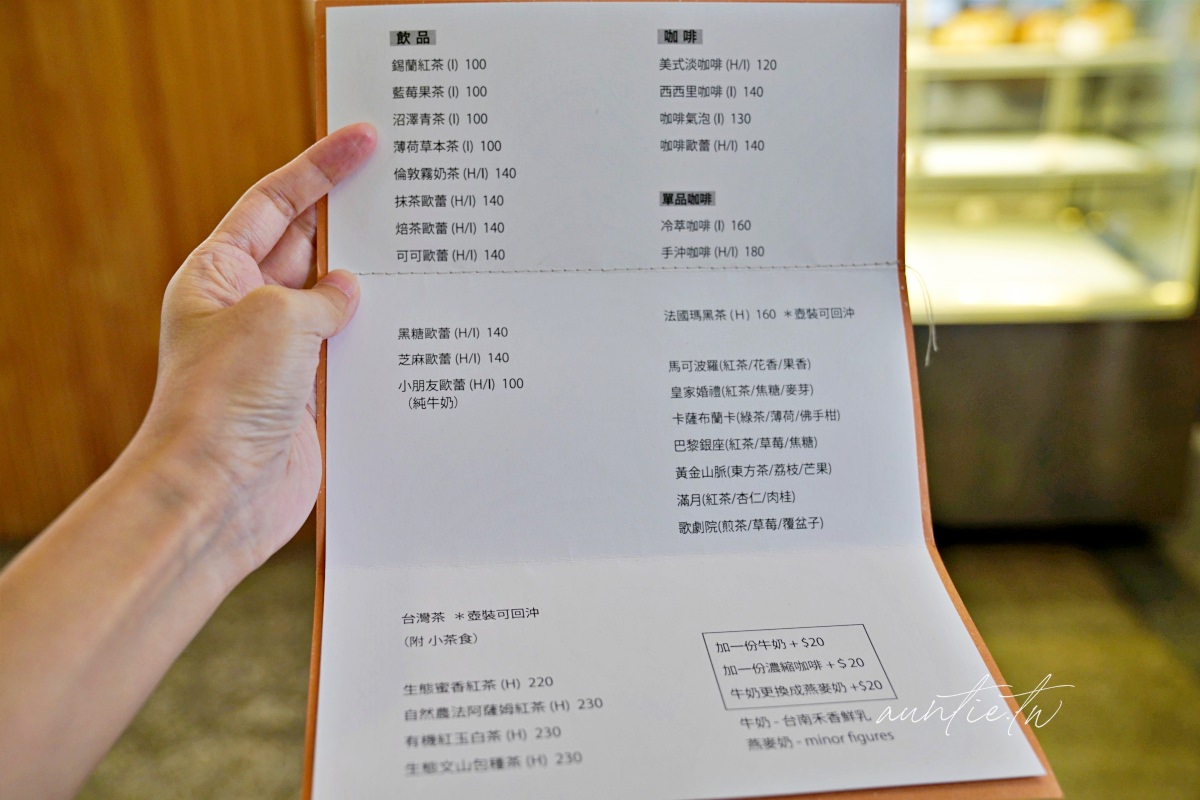 飲品
錫蘭紅茶 (I) 100
藍莓果茶 (I) 100
沼澤青茶 (I) 100
薄荷草本茶 (I) 100
倫敦霧奶茶 (H/I) 140
抹茶歐蕾 (H/I) 140
焙茶歐蕾 (H/I) 140
可可歐蕾 (H/I) 140
黑糖歐蕾 (H/I) 140
芝麻歐蕾 (H/I) 140
小朋友歐蕾 (H/I) 100
（純牛奶）
咖啡
美式淡咖啡 (H/I) 120
西西里咖啡 (I) 140
咖啡氣泡 (I) 130
咖啡歐蕾 (H/I) 140
單品咖啡
冷萃咖啡 (I) 160
手沖咖啡 (H/I) 180
法國瑪黑茶 (H) 160 ＊壺裝可回沖
馬可波羅(紅茶/花香/果香)
皇家婚禮(紅茶/焦糖/麥芽)
卡薩布蘭卡(綠茶/薄荷/佛手柑)
巴黎銀座(紅茶/草莓/焦糖)
黃金山脈(東方茶/荔枝/芒果)
滿月(紅茶/杏仁/肉桂)
歌劇院(煎茶/草莓/覆盆子)
台灣茶 ＊壺裝可回沖
（附 小茶食）
生態蜜香紅茶 (H) 220
自然農法阿薩姆紅茶 (H) 230
有機紅玉白茶 (H) 230
生態文山包種茶 (H) 230
加一份牛奶 + $20
加一份濃縮咖啡 + $ 20
牛奶更換成燕麥奶 +$20
牛奶 - 台南禾香鮮乳
燕麥奶 - minor figures
auntie.tw